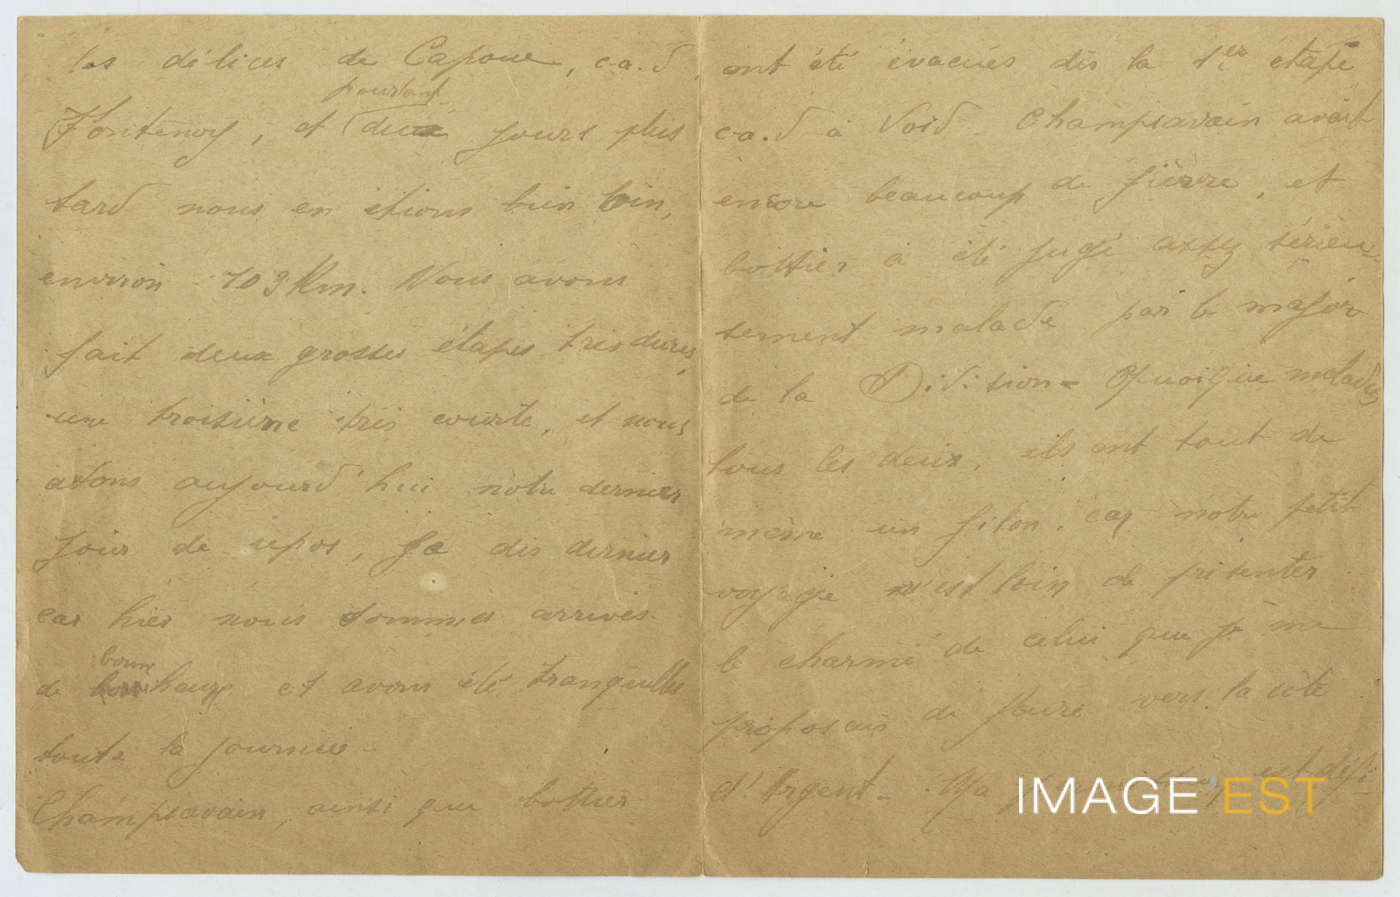 les délices de Capoue, c.a.d
pourtant
Fontenoy, et deux jours plus
tard nous en étions bien loin,
environ 103 Km. Nous avons
fait deux grosses étapes très dures,
une troisième très courte, et nous
avons aujourd'hui notre dernier
jour de repos, je dis dernier
car hier nous sommes arrivés
bonne
de heure et avons été tranquilles
toute la journée
Champsavain, ainsi que bottier
ont été évacués dès la 1ère étape
c.a.d à Void. Champsavain avait
encore beaucoup de fièvre, et
bottier a été jugé assez sérieu-
sement malade par le major
de la Division - Quoique malades
tous les deux, ils ont tout de
même un filon, car notre petit
voyage n'est loin de présenter
le charme de celui que je me
proposais de faire vers la côte
d'Argent. Ma est défi-
IMAGE EST